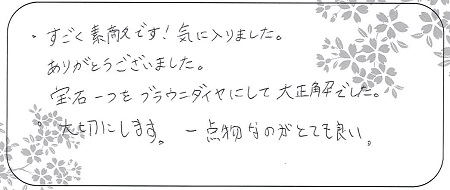 ・すごく素敵です！気に入りました。
ありがとうございました。
宝石一つをブラウニダイヤにして大正解でした。
。大切にします。一点物なのがとても良い。